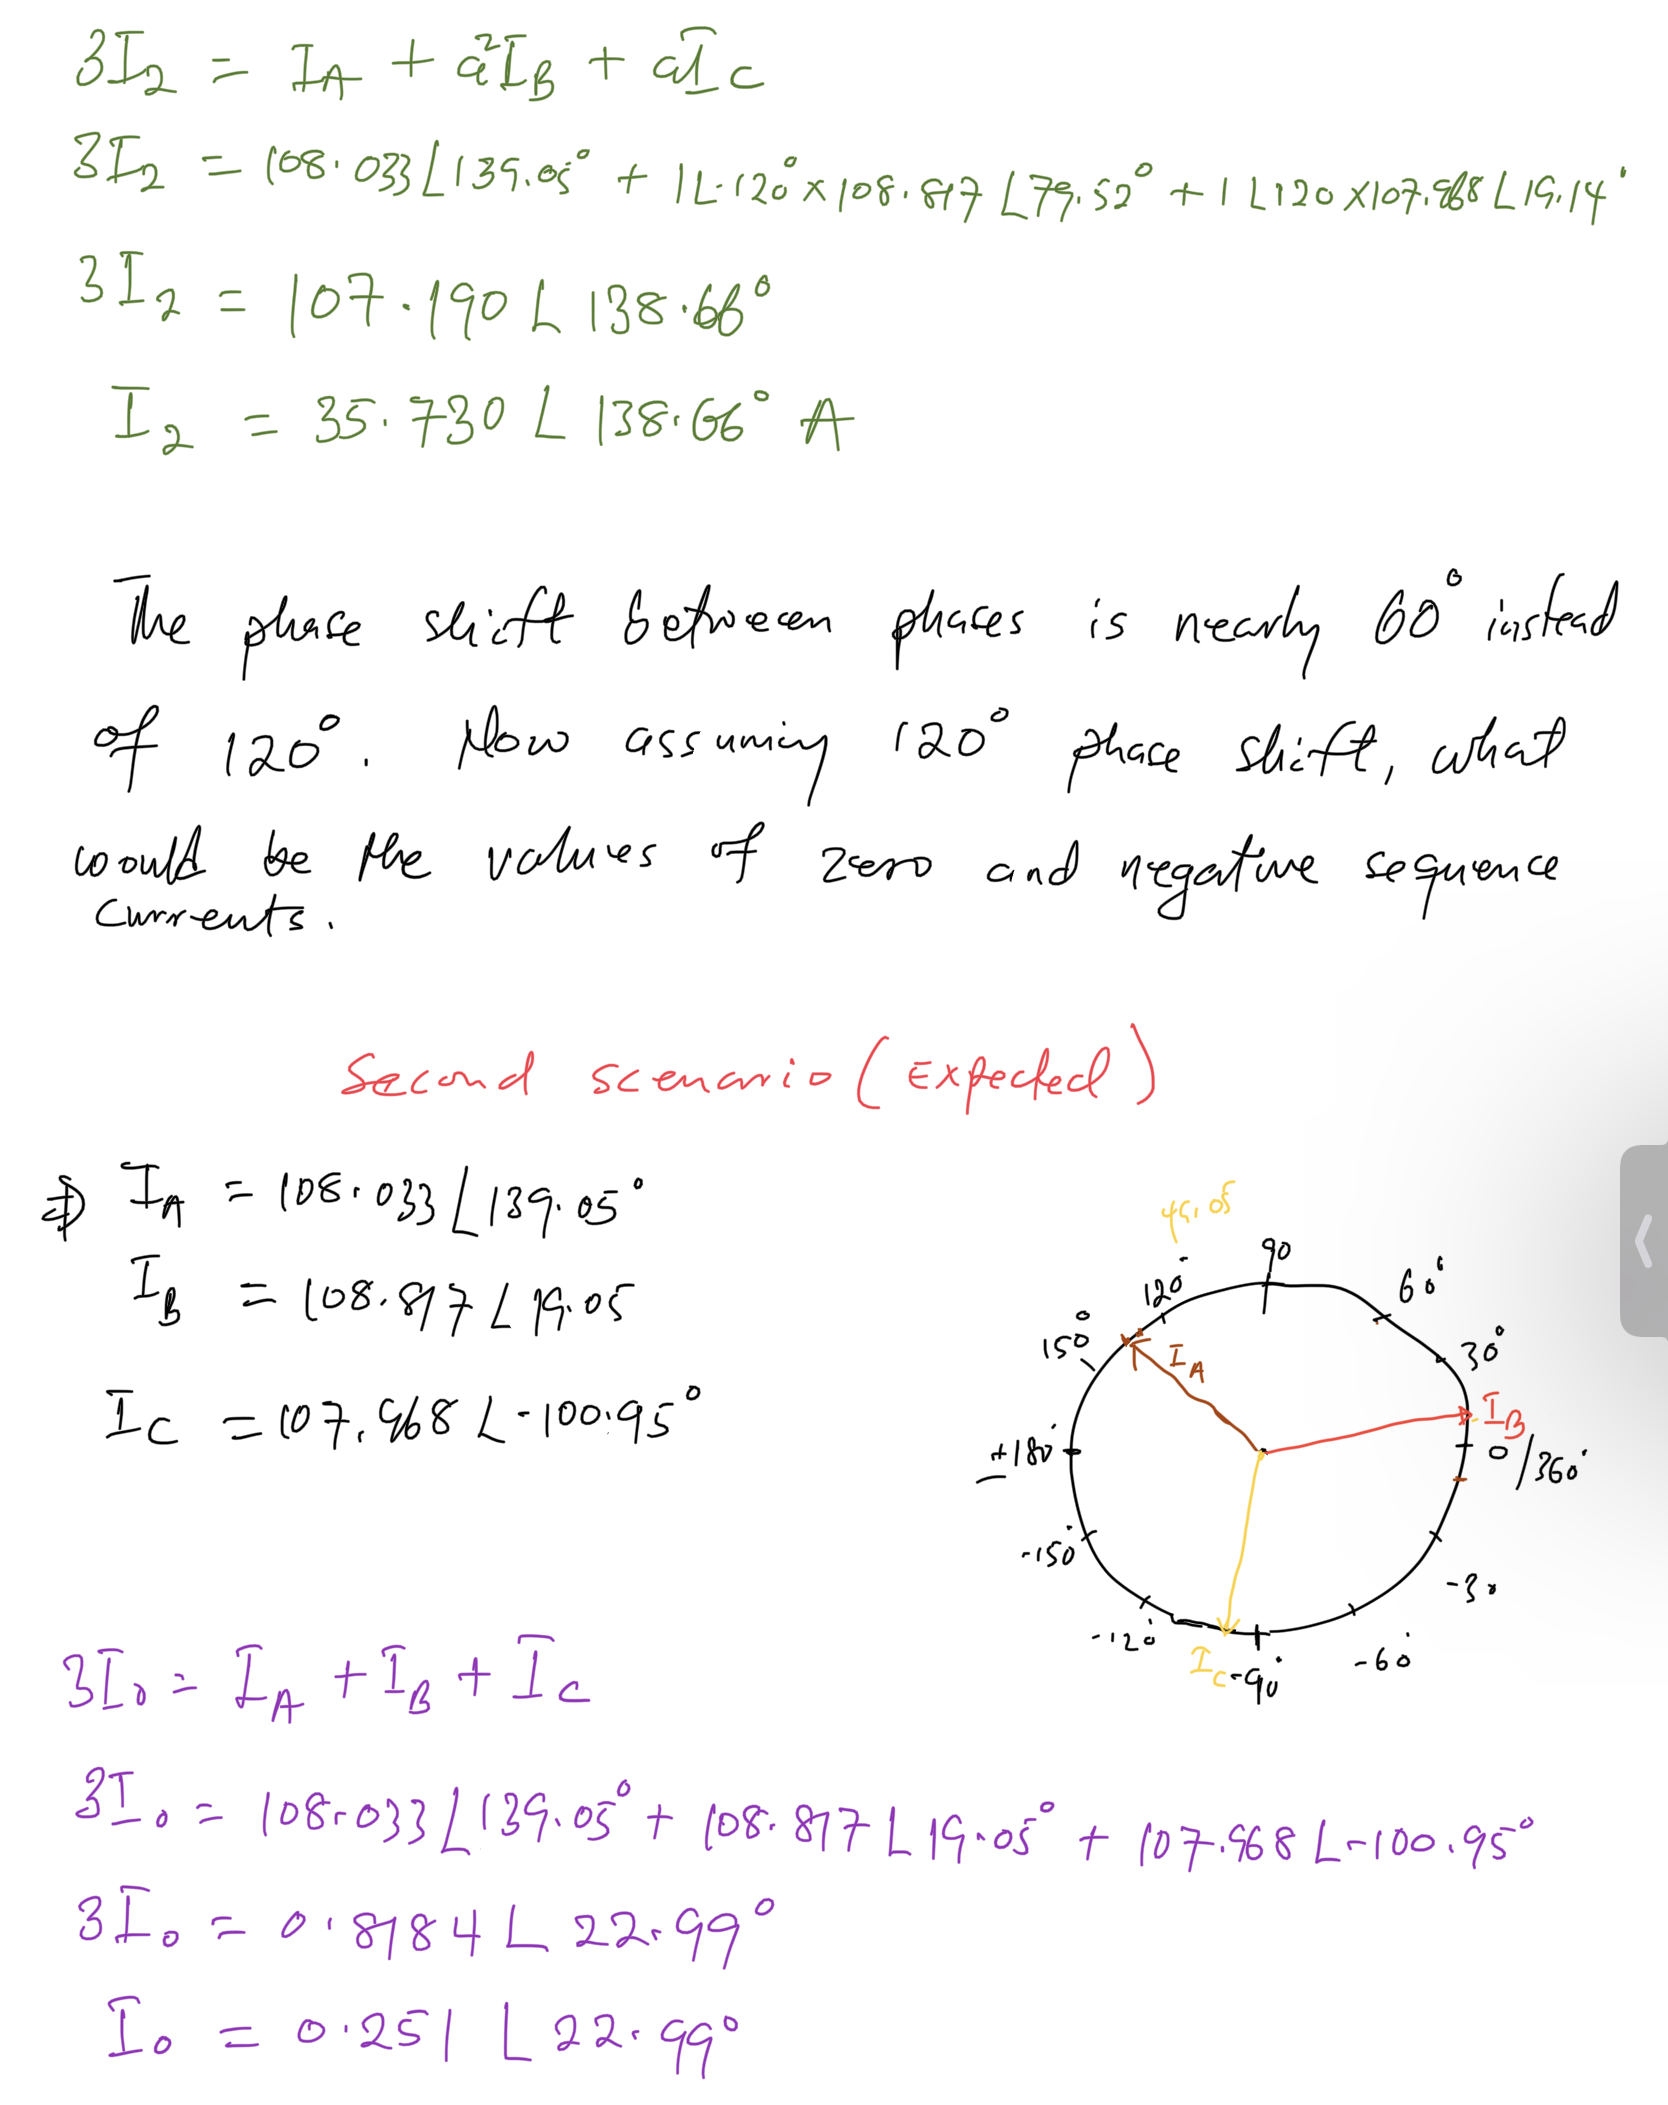 3I₂ = I_A + a²I_B + aI_C
3I₂ = 108.033∠139.05° + 1∠-120° × 108.817∠79.52° + 1∠120 × 107.968∠19.14°
3I₂ = 107.190∠138.66°
I₂ = 35.730∠138.66° A
The phase shift between phases is nearly 60° instead
of 120°. Now assuming 120° phase shift, what
would be the values of zero and negative sequence
currents.
Second scenario (Expected)
⇒ I_A = 108.033∠139.05°
I_B = 108.817∠19.05
I_C = 107.968∠-100.95°
49.05
90
120°
60°
150°
30°
I_A
I_B
±180°
0/360°
-150°
-30
-120°
I_C
-90°
-60°
3I₀ = I_A + I_B + I_C
3I₀ = 108.033∠139.05° + 108.817∠19.05° + 107.968∠-100.95°
3I₀ = 0.8184∠22.99°
I₀ = 0.251∠22.99°